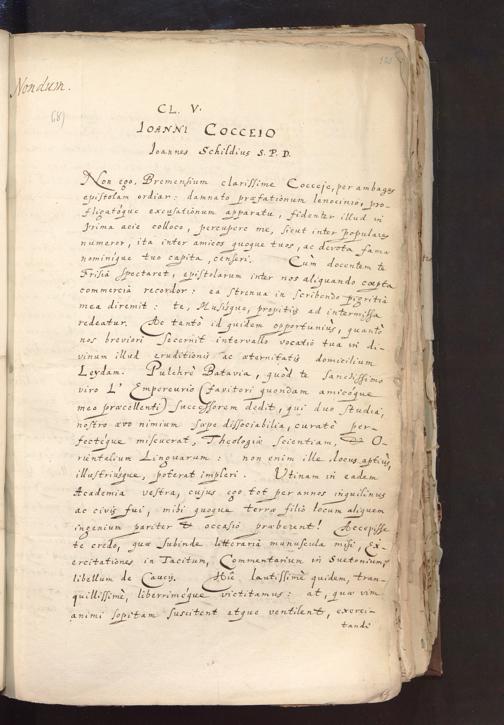 Nondum.
(8)
125
CL. V.
IOANNI COCCEIO
Joannes Schildius S. P. D.
Non ego, Bremensium clarissime Cocceje, per ambages
epistolam ordiar: damnato præfationum lenocinio, pro-
fligatóque excusationum apparatu, fidenter illud in
prima acie colloco, percupere me, sicut inter populares
numeror, ita inter amicos quoque tuos, ac devota famæ
nominique tuo capita, censeri. Cùm docentem te
Frisia spectaret, epistolarum inter nos aliquando cœpta
commercia recordor: ea strenua in scribendo pigritia
mea diremit: te, Musisque, propitiis ad intermissa
redeatur. Ac tantò id quidem opportuniùs, quantò
nos breviori secernit intervallo vocatio tua in di-
vinum illud eruditionis ac æternitatis domicilium
Leydam. Pulchrè Batavia, quòd te sanctissimo
viro L'Empereurio (fautori quondam amicóque
meo præcellenti) successorem dedit, qui duo studia,
nostro ævo nimium sæpe dissociabilia, curatè per-
fectéque miscuerat, Theologiæ scientiam, & O-
rientalium Linguarum: non enim ille locus aptiùs,
illustriúsque, poterat impleri. Utinam in eadem
Academia vestra, cujus ego tot per annos inquilinus
ac civis fui, mihi quoque terræ filio locum aliquem
ingenium pariter & occasio præberent! Accepisse
te credo, quæ subinde litteraria munuscula misi, Ex-
ercitationes in Tacitum, Commentarium in Suetonium,
libellum de Caucis. Hîc lautissimè quidem, tran-
quillissimè, liberriméque victitamus: at, quæ vim
animi sopitam suscitent atque ventilent, exerci-
tandi